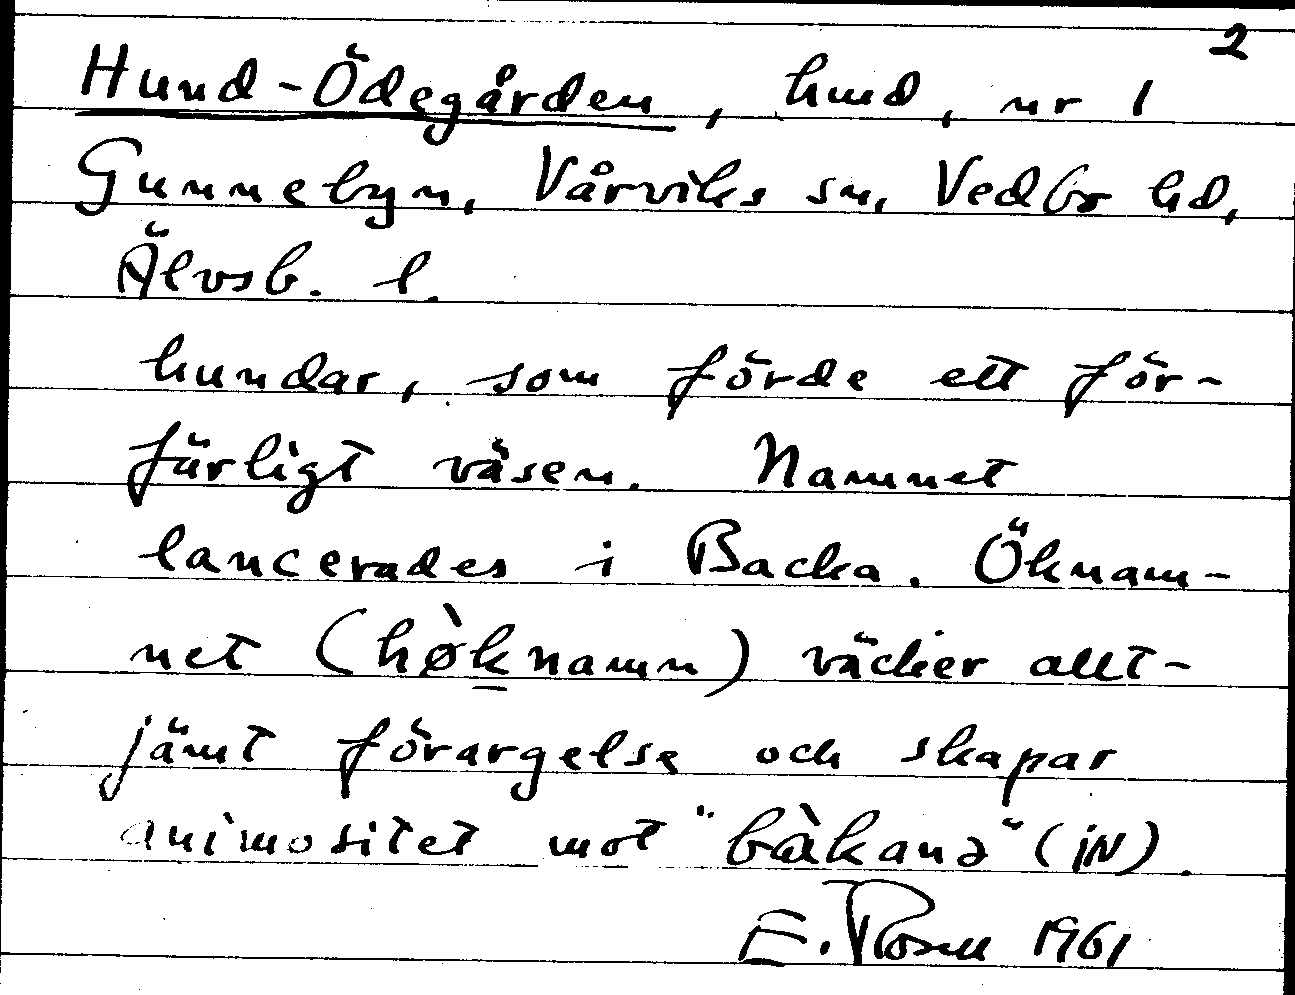 2
Hund-Ödegården, hmd, nr 1
Gunnebyn, Vårviks sn, Vedbo hd,
Älvsb. l.
hundar, som förde ett för-
färligt väsen. Namnet
lancerades i Backa. Öknam-
net (hø̀knamn) väcker allt-
jämt förargelse och skapar
animositet mot "bàkanə" (iN).
E. Rosell 1961